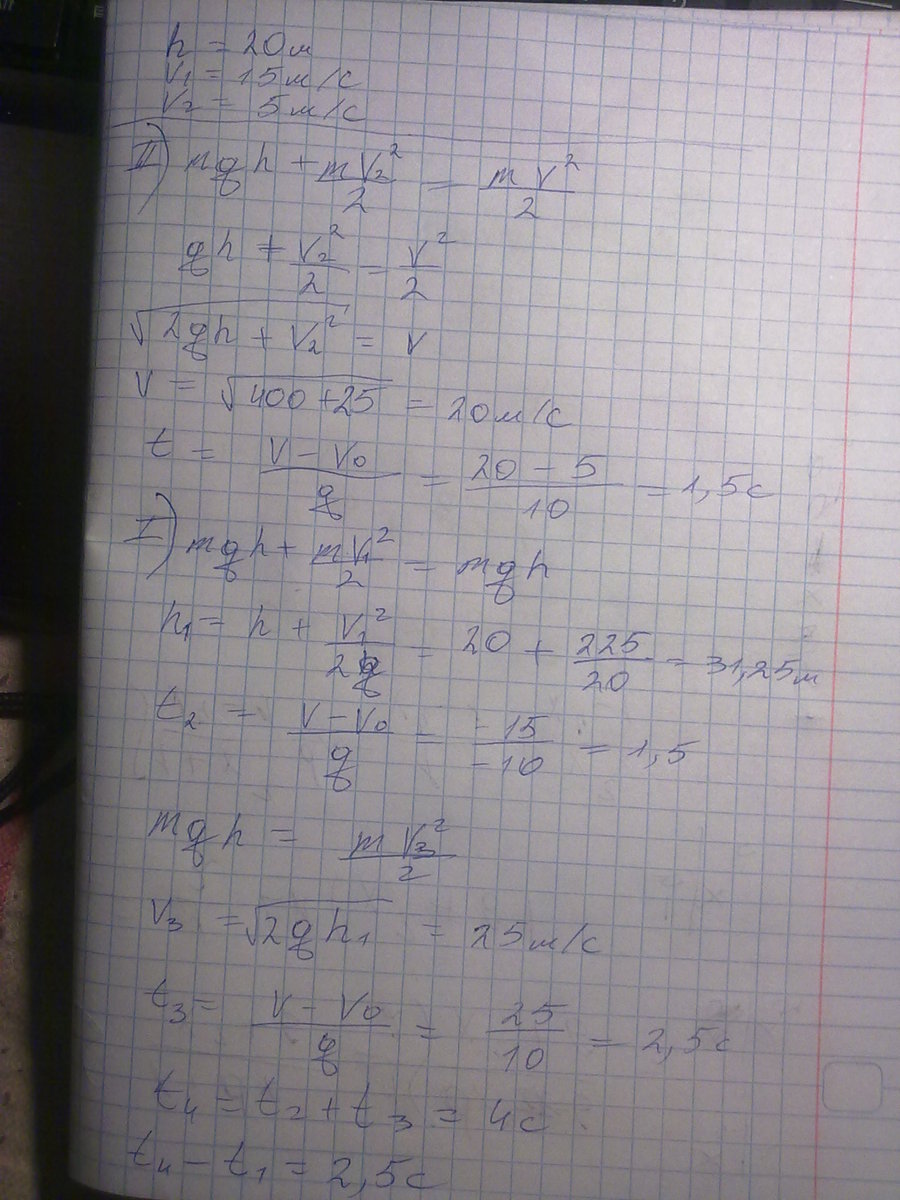 h = 20м
v₁ = 15м/с
v₂ = 5м/с
II) mgh + mv₂²/2 = mv²/2
gh + v₂²/2 = v²/2
√(2gh + v₂²) = v
v = √(400+25) = 20м/с
t = (v - v₀)/g = (20 - 5)/10 = 1,5с
I) mgh + mv₁²/2 = mgh
h₁ = h + v₁²/2g = 20 + 225/20 = 31,25м
t₂ = (v - v₀)/g = -15/-10 = 1,5
mgh = mv₃²/2
v₃ = √(2gh₁) = 25м/с
t₃ = (v - v₀)/g = 25/10 = 2,5с
t₄ = t₂ + t₃ = 4с
t₄ - t₁ = 2,5с